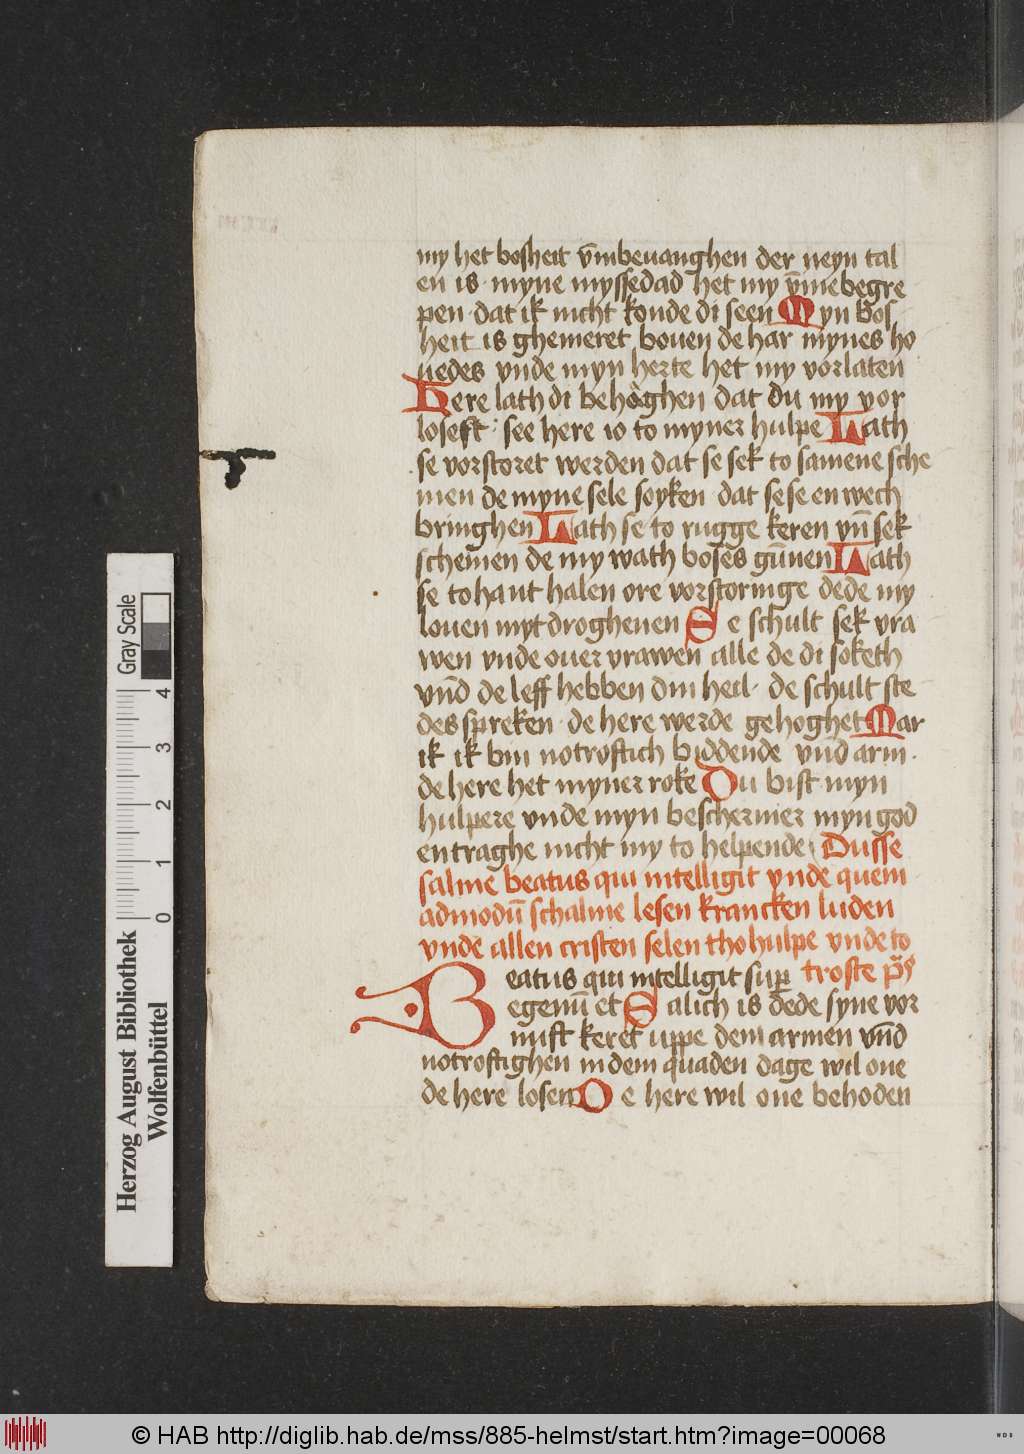 my het bosheit v̄mbeuanghen der neyn tal
en is · myne myssedad het my v̄mebegre
pen · dat ik nicht konde di seen Myn bos
heit is ghemeret bouen de har mynes ho
uedes vnde myn herte het my vorlaten
Here lath di behoͤghen dat du my vor
losest · see here io to myner hulpe Lath
se vorstoret werden dat se sek to samene sche
men de myne sele soyken dat se se en wech
bringhen Lath se to rugge keren vn̄ sek
schemen de my wath boses gūnen Lath
se to hant halen ore vorstoringe dede my
louen myt droghenen Se schult sek vra
wen vnde ouer vrawen alle de di soketh
vn̄d de leff hebben din heil · de schult ste
des spreken · de here werde gehoghet Mar
ik ik bin notroftich biddende vnd arm ·
de here het myner roke Du bist myn
hulpere vnde myn beschermer myn god
en traghe nicht my to helpende Dusse
salme beatus qui intelligit vnde quem
admodū schalme lesen krancken luden
vnde allen cristen selen tho hulpe vnde to
Beatus qui intelligit sup troste ps
egenū et Salich is dede syne vor
nuft keret uppe dem armen vn̄d
notroftighen in dem quaden dage wil one
de here losen De here wil one behoden
Gray Scale
0 1 2 3 4
Herzog August Bibliothek
Wolfenbüttel
© HAB http://diglib.hab.de/mss/885-helmst/start.htm?image=00068